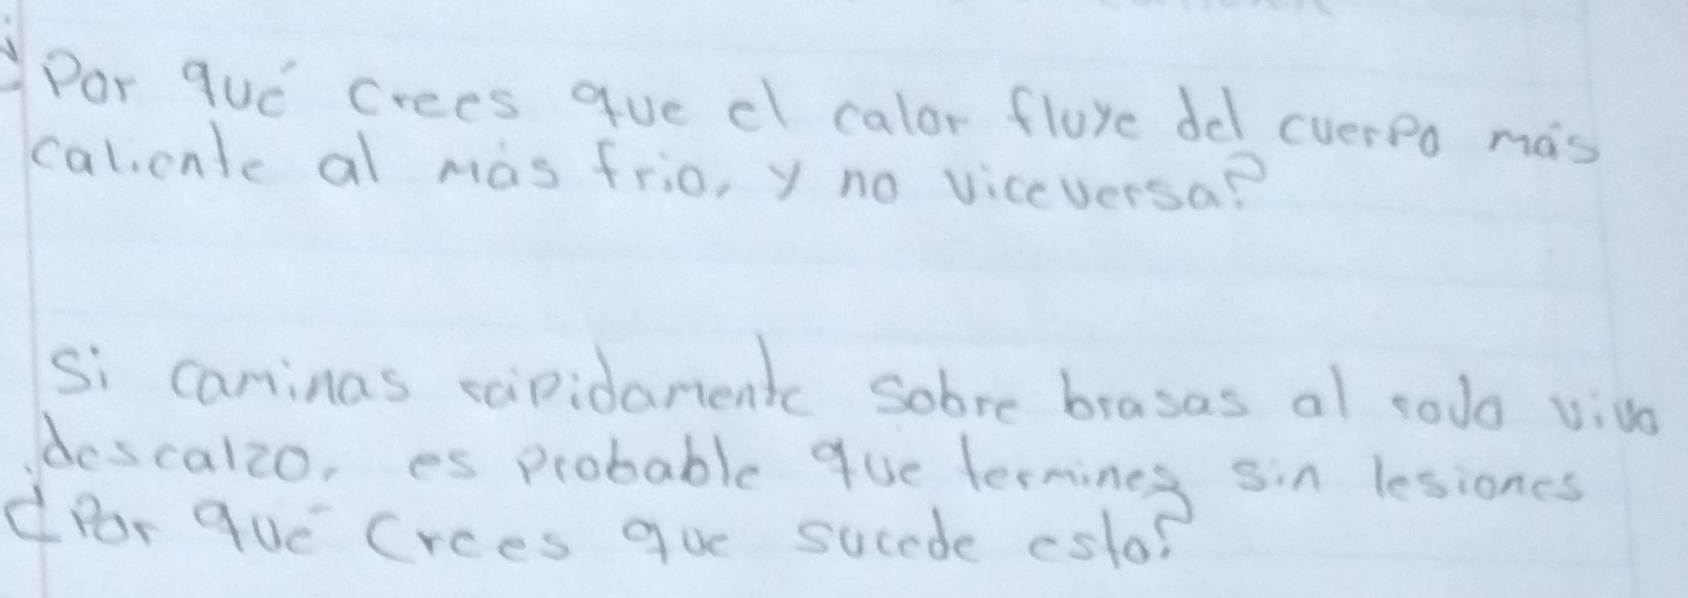 ¿Por qué crees que el calor fluye del cuerpo más
caliente al más frio, y no viceversa?
Si caminas rápidamente sobre brasas al rojo vivo
descalzo, es probable que termines sin lesiones
¿Por qué crees que sucede esto?